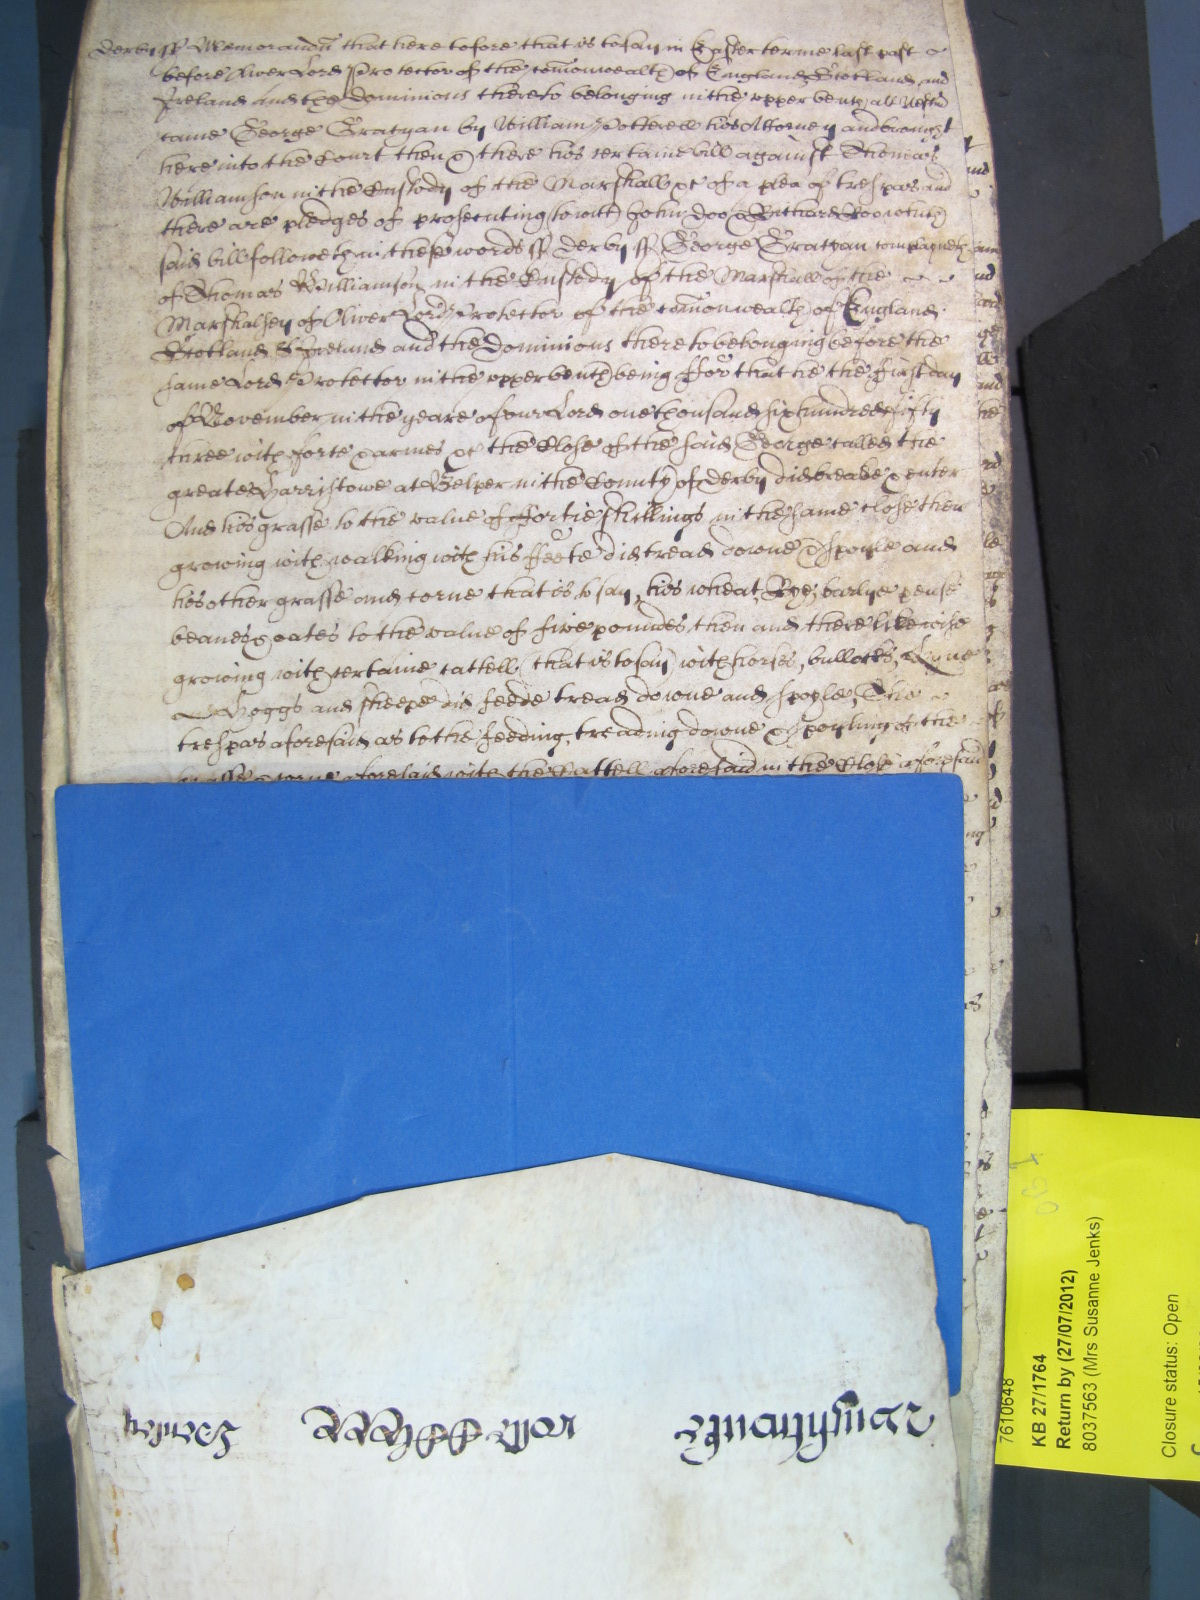 Derby ss Memorandū that heretofore that is to say in Easter terme last past
before Oliver Lord Protector of the comonwealth of England Scotland and
Ireland and the Dominions thereto belonging in the upper bench att Westm
came George Gratyan by William Cotterell his Attorney and brought
here into the Court then & there his certaine bill against Thomas
Williamson in the Custody of the Marshall &c of a plea of trespas and
there are pledges of prosecuting (to witt) John Doo & Richard Roo which
said bill followeth in these words ss Derby ss George Gratyan complayneth
of Thomas Williamson in the Custody of the Marshall of the
Marshalsey of Oliver Lord Protector of the comonwealth of England
Scotland & Ireland and the Dominions thereto belonging before the
same Lord Protector in the upper bench being ffor that he the ffirst day
of November in the yeare of our Lord one thousand six hundred fifty
three with force & armes &c the Close of the said George called the
greate Barristowe at Belper in the County of Derby did breake & enter
And his grasse to the value of ffortie shillings in the same close then
growing with walking with his ffeete did tread downe & spoyle and
his other grasse and corne that is to say, his wheat, Rye, barlye pease
beanes & oates to the value of five poundes then and there likewise
growing with certaine cattell (that is to say) with horses, bullocks, Kyne
Hoggs and sheepe did feede tread downe and spoyle, The
trespas aforesaid as to the feeding, treading downe & spoyling of the
grasse & corne aforesaid with the Cattell aforesaid in the Close aforesaid
roll
7610648
KB 27/1764
Return by (27/07/2012)
8037563 (Mrs Susanne Jenks)
Closure status: Open